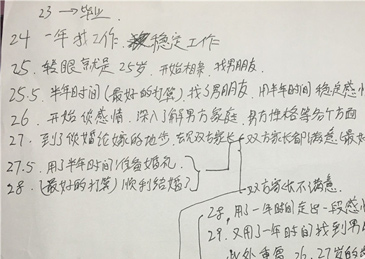 23 → 毕业
24 一年找工作. 稳定工作
25. 转眼就是25岁. 开始相亲. 找男朋友.
25.5. 半年时间(最好的打算)找了男朋友. 用半年时间稳定感情
26. 开始谈感情. 深入了解男方家庭. 男方性格等各个方面
27. 到了谈婚论嫁的地步. 去见双方家长 双方家长都满意(最好
27.5. 用了半年时间准备婚礼.
28. (最好的打算)顺利结婚了 双方家长不满意.
28, 用了一年时间走出一段感情
29. 又用了一年时间找到男
26. 27岁的